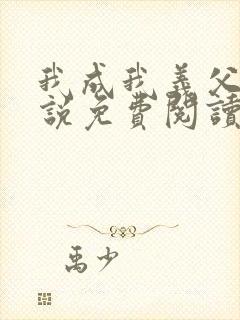 我成我義父
說免費閱讀
禹少